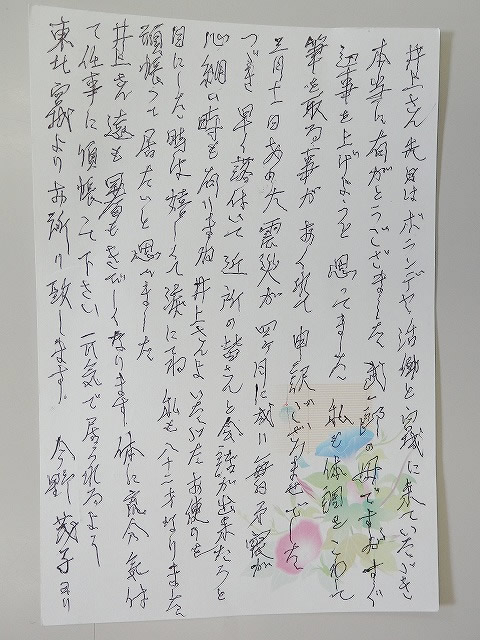 井上さん先日はボランデヤ活動と宮城に来ていただき
本当に有がとうございました 武郎の母ですがすぐ
返事を上げようと思ってました 私も体調をこわして
筆を取る事が おくれて 申訳ございませでした
三月十一日あの大震災が四ヶ月に成り毎日余震が
つづき 早く落付いて近所の皆さんと会話が出来たらと
心細い時も有りますね 井上さんよりいただいたお便りを
目にした時は嬉しくて涙にね 私も八十二才なりました
頑張って居たいと思いました
井上さん 遠も暑もきびしくなります 体に充分気付
て仕事に頑張って下さい 元気で居られるよう
東北宮城よりお祈り致します。 今野茂子より